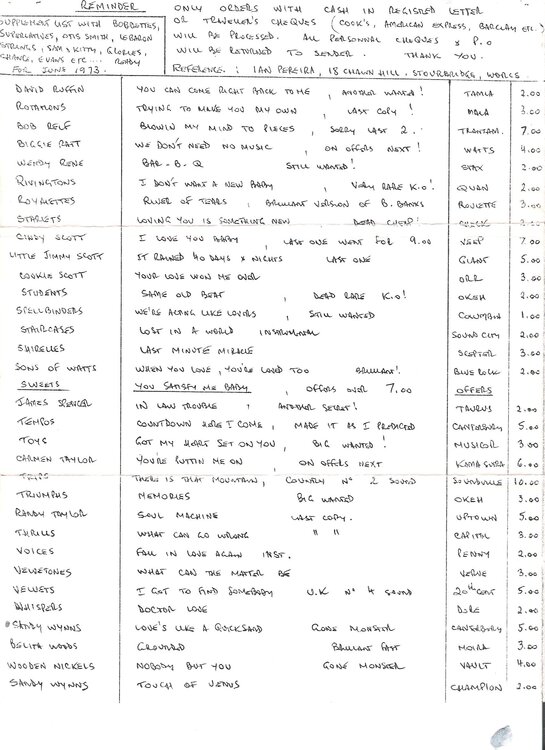 REMINDER
SUPPLEMENT LIST WITH BOBBETTES,
SUPERLATIVES, OTIS SMITH, LEBARON
STRONGS, SAM & KITTY, GLORIES,
CHANS, EVANS ETC.... READY
FOR JUNE 1973.
ONLY ORDERS WITH CASH IN REGISTERED LETTER
OR TRAVELER'S CHEQUES (COOK'S, AMERICAN EXPRESS, BARCLAY ETC.)
WILL BE PROCESSED. ALL PERSONNAL CHEQUES & P.O
WILL BE RETURNED TO SENDER. THANK YOU.
REFERENCE : IAN PEREIRA, 18 CHAWN HILL, STOURBRIDGE, WORCS
DAVID RUFFIN YOU CAN COME RIGHT BACK TO ME, ANOTHER WANTED! TAMLA 2.00
ROTATIONS TRYING TO MAKE YOU MY OWN, LAST COPY! MALA 3.00
BOB RELF BLOWIN MY MIND TO PIECES, SORRY LAST 2. TRANSAM. 7.00
BIGGIE RATT WE DON'T NEED NO MUSIC, ON OFFERS NEXT! WATTS 4.00
WENDY RENE BAR-B-Q STILL WANTED! STAX 2.00
RIVINGTONS I DON'T WANT A NEW BABY, VERY RARE K.O! QUAN 2.00
ROYALETTES RIVER OF TEARS, BRILLIANT VERSION OF B. BANKS ROULETTE 3.00
STARLETS LOVING YOU IS SOMETHING NEW DEAD CHEAP! 2.00
CINDY SCOTT I LOVE YOU BABY, LAST ONE WENT FOR 9.00 VEEP 7.00
LITTLE JIMMY SCOTT IT RAINED 40 DAYS & NIGHTS LAST ONE GIANT 5.00
COOKIE SCOTT YOUR LOVE WON ME OVER ORR 3.00
STUDENTS SAME OLD BEAT, DEAD RARE K.O! OKEH 2.00
SPELLBINDERS WE'RE ACTING LIKE LOVERS, STILL WANTED COLUMBIA 1.00
STAIRCASES LOST IN A WORLD INSTRUMENTAL SOUND CITY 2.00
SHIRELLES LAST MINUTE MIRACLE SCEPTER 3.00
SONS OF WATTS WHEN YOU LOVE, YOU'RE LOVED TOO BRILLIANT! BLUE ROCK 2.00
SWEETS YOU SATISFY ME BABY, OFFERS OVER 7.00 OFFERS
JAMES SPENCER IN LAW TROUBLE; ANOTHER SECRET! TAURUS 2.00
TEMPOS COUNTDOWN HERE I COME, MADE IT AS I PREDICTED CANTERBURY 5.00
TOYS GOT MY HEART SET ON YOU, BIG WANTED! MUSICOR 3.00
CARMEN TAYLOR YOU'RE PUTTIN ME ON, ON OFFERS NEXT KAMA SUTRA 6.00
THERE IS THAT MOUNTAIN, COUNTRY N° 2 SOUND SOUNDVILLE 10.00
TRIUMPHS MEMORIES BIG WANTED OKEH 3.00
RANDY TAYLOR SOUL MACHINE LAST COPY. UPTOWN 5.00
THRILLS WHAT CAN GO WRONG " " CAPITOL 3.00
VOICES FALL IN LOVE AGAIN INST. PENNY 2.00
VELVETONES WHAT CAN THE MATTER BE VERVE 3.00
VELVETS I GOT TO FIND SOMEBODY U.K N° 4 SOUND 20TH CENT 5.00
WHISPERS DOCTOR LOVE DORE 2.00
SANDY WYNNS LOVE'S LIKE A QUICKSAND GONE MONSTER CANTERBURY 5.00
BELITA WOODS GROUNDED BRILLIANT FAST MOIRA 3.00
WOODEN NICKELS NOBODY BUT YOU GONE MONSTER VAULT 4.00
SANDY WYNNS TOUCH OF VENUS CHAMPION 2.00